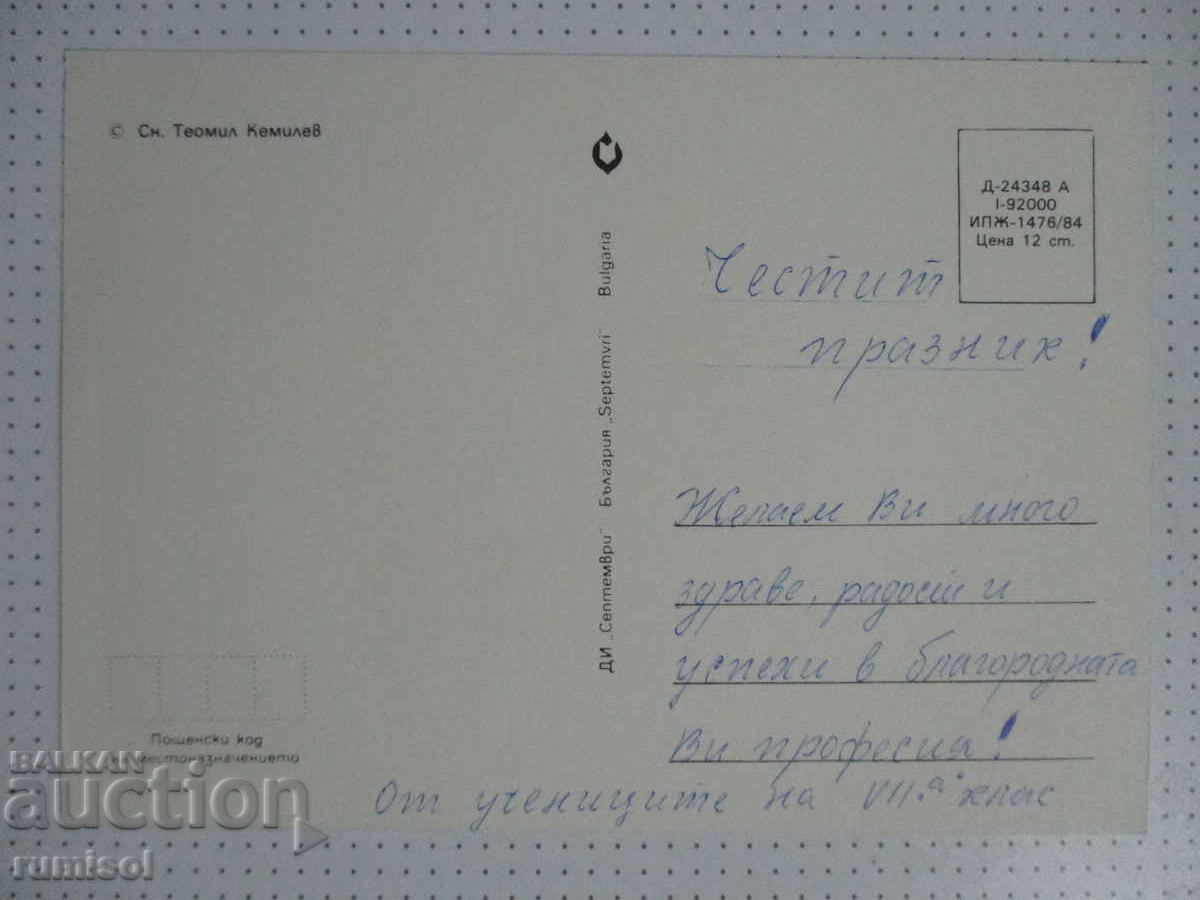 © Сн. Теомил Кемилев
Д-24348 А
I-92000
ИПЖ-1476/84
Цена 12 ст.
Честит
празник!
ДИ „Септември" България „Septemvri" Bulgaria
Желаем Ви много
здраве, радост и
успехи в благородната
Ви професия!
От учениците на VII "а" клас
Пощенски код
местоназначението
BALKAN
auction
rumisol